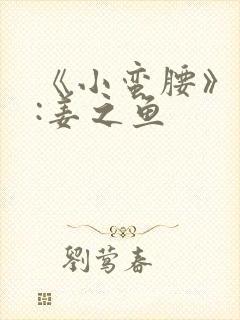 《小蛮腰》
:姜之鱼
劉莺春